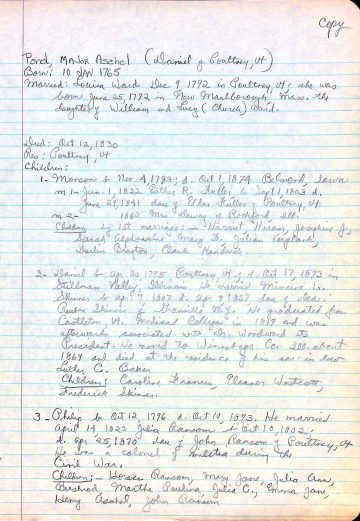 Copy
Pond, Major Asahel (Daniel of Poultney, Vt)
Born: 10 Jan 1765
Married: Louisa Ward Dec 9, 1792 in Poultney, Vt; she was
born June 25, 1772 in New Marlborough, Mass. the
daughter of William and Lucy (Church) Ward.
Died: Oct 12, 1830
Res: Poultney, Vt
Children:
1- Monson b Nov 4, 1793; d. Oct 1, 1874 Belmond, Iowa
m 1- Jan. 1, 1822 Esther R. Fuller b Sept 1, 1803 d.
June 29, 1841 dau of Fuller of Poultney, Vt
m 2- 1862 Mrs. of Rockford, Ill.
Children by 1st marriage: - Harriet, Hiram, Josephine J.,
Sarah Alphonsine, Mary F.,
2- Daniel b Apr 30, 1795 Poultney, Vt; d. Oct 17, 1873 in
Stillman Valley, Illinois. He married Minerva
Skinner b Apr 7, 1807 d. Apr 9, 1857 dau of Dea.
Reuben Skinner of Granville N.Y. He graduated from
Castleton Vt. Medical College in 1819 and was
afterwards associated with Dr. Woodward its
President. He moved to Winnebago Co. Ill. about
1869 and died at the residence of his son-in-law
Luther C. Baker
Children: Caroline Frances, Eleanor Westcott,
Frederick Skinner.
3- Philip b Oct 12, 1796 d. Oct 10, 1893. He married
April 14, 1823 Julia Ransom b Oct 10, 1802;
d. Apr 25, 1870 dau of John Ransom of Poultney, Vt
He was a colonel of militia during the
Civil War.
Children: - Horace Ransom, Mary Jane, Julia Ann,
Bushrod, Martha Paulina, Julia C., Emma Jane,
Henry Asahel, John Ransom